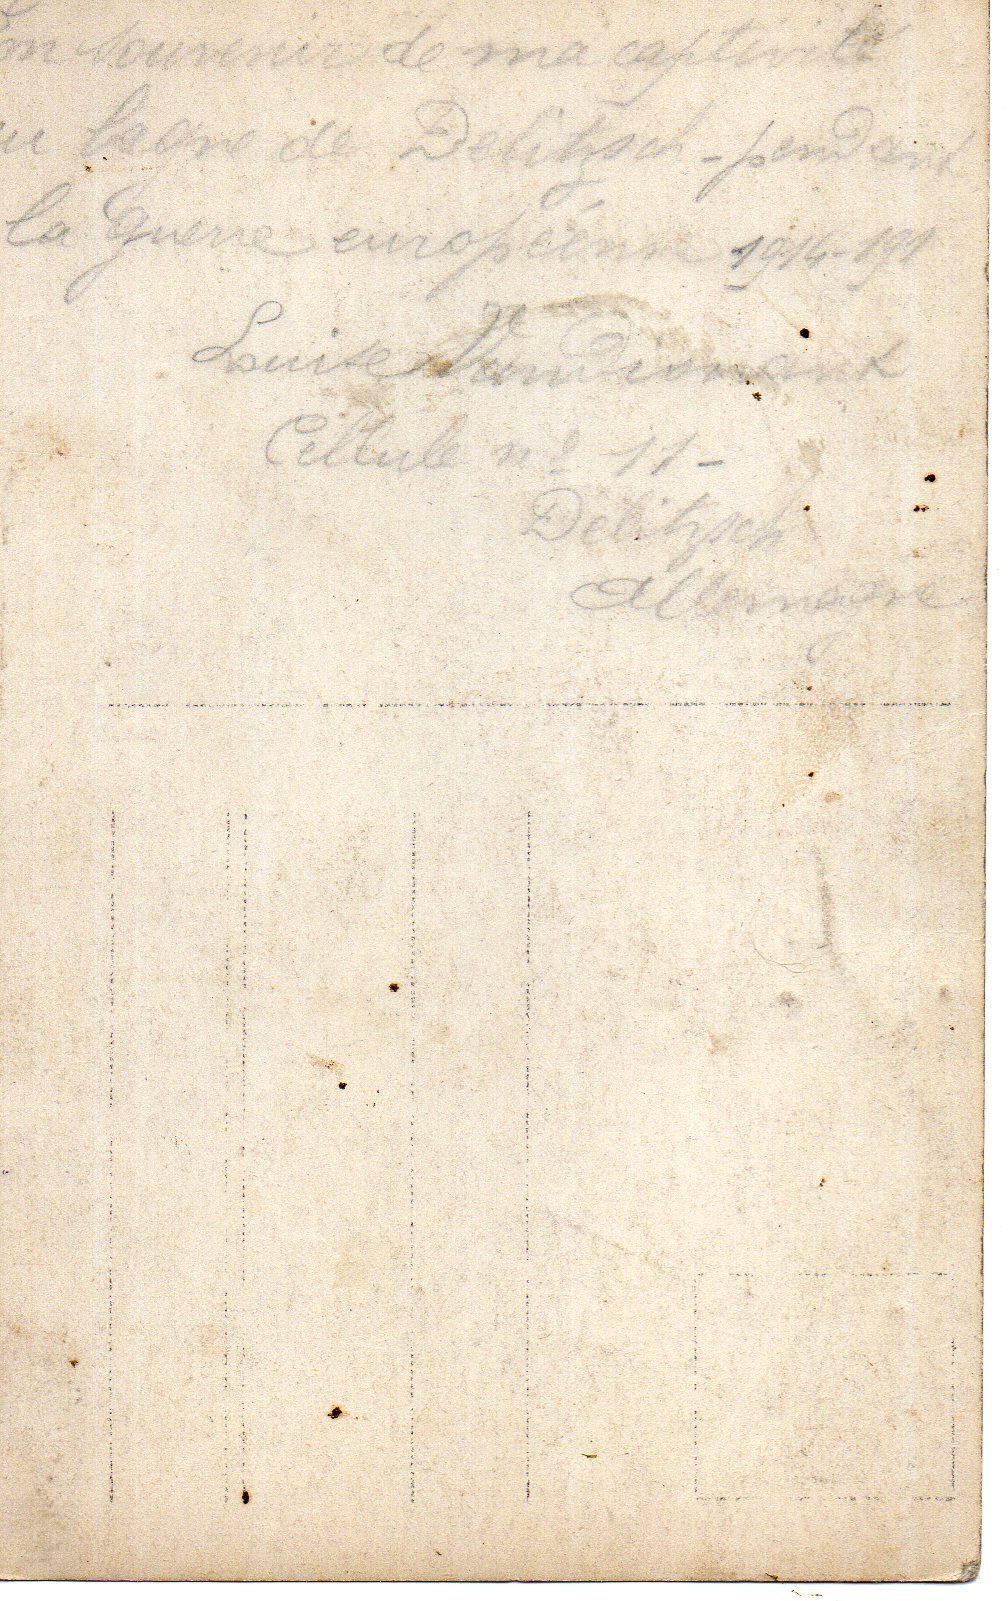 Bon souvenir de ma captivité
au bagne de Delitzsch - pendant
la guerre européenne 1914-191
Louise
Cellule nº 11 -
Delitzsch
Allemagne